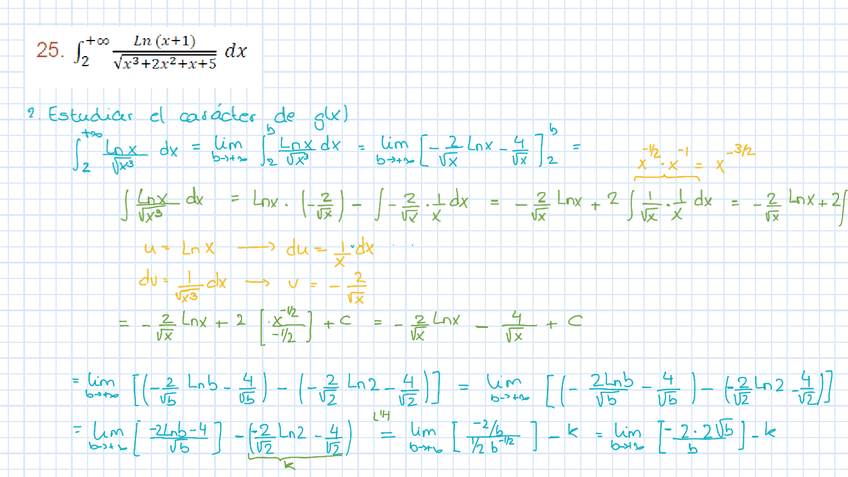 25. ∫₂^{+∞} Ln (x+1) / √(x³+2x²+x+5) dx
? Estudiar el carácter de g(x)
∫₂^{+∞} Lnx/√x³ dx = lim_{b→+∞} ∫₂^b Lnx/√x³ dx = lim_{b→+∞} [-2/√x Lnx - 4/√x]₂^b =
x^{-1/2} · x^{-1} = x^{-3/2}
∫ Lnx/√x³ dx = Lnx · (-2/√x) - ∫ -2/√x · 1/x dx = -2/√x Lnx + 2 ∫ 1/√x · 1/x dx = -2/√x Lnx + 2 ∫
u = Lnx → du = 1/x · dx
dv = 1/√x³ dx → v = -2/√x
= -2/√x Lnx + 2 [x^{-1/2}/(-1/2)] + C = -2/√x Lnx - 4/√x + C
= lim_{b→+∞} [(-2/√b Lnb - 4/√b) - (-2/√2 Ln2 - 4/√2)] = lim_{b→+∞} [(-2Lnb/√b - 4/√b) - (-2/√2 Ln2 - 4/√2)]
= lim_{b→+∞} [(-2Lnb-4)/√b] - (-2/√2 Ln2 - 4/√2) = L'H lim_{b→+∞} [(-2/b)/(1/2 b^{-1/2})] - k = lim_{b→+∞} [-2·2√b/b] - k
k